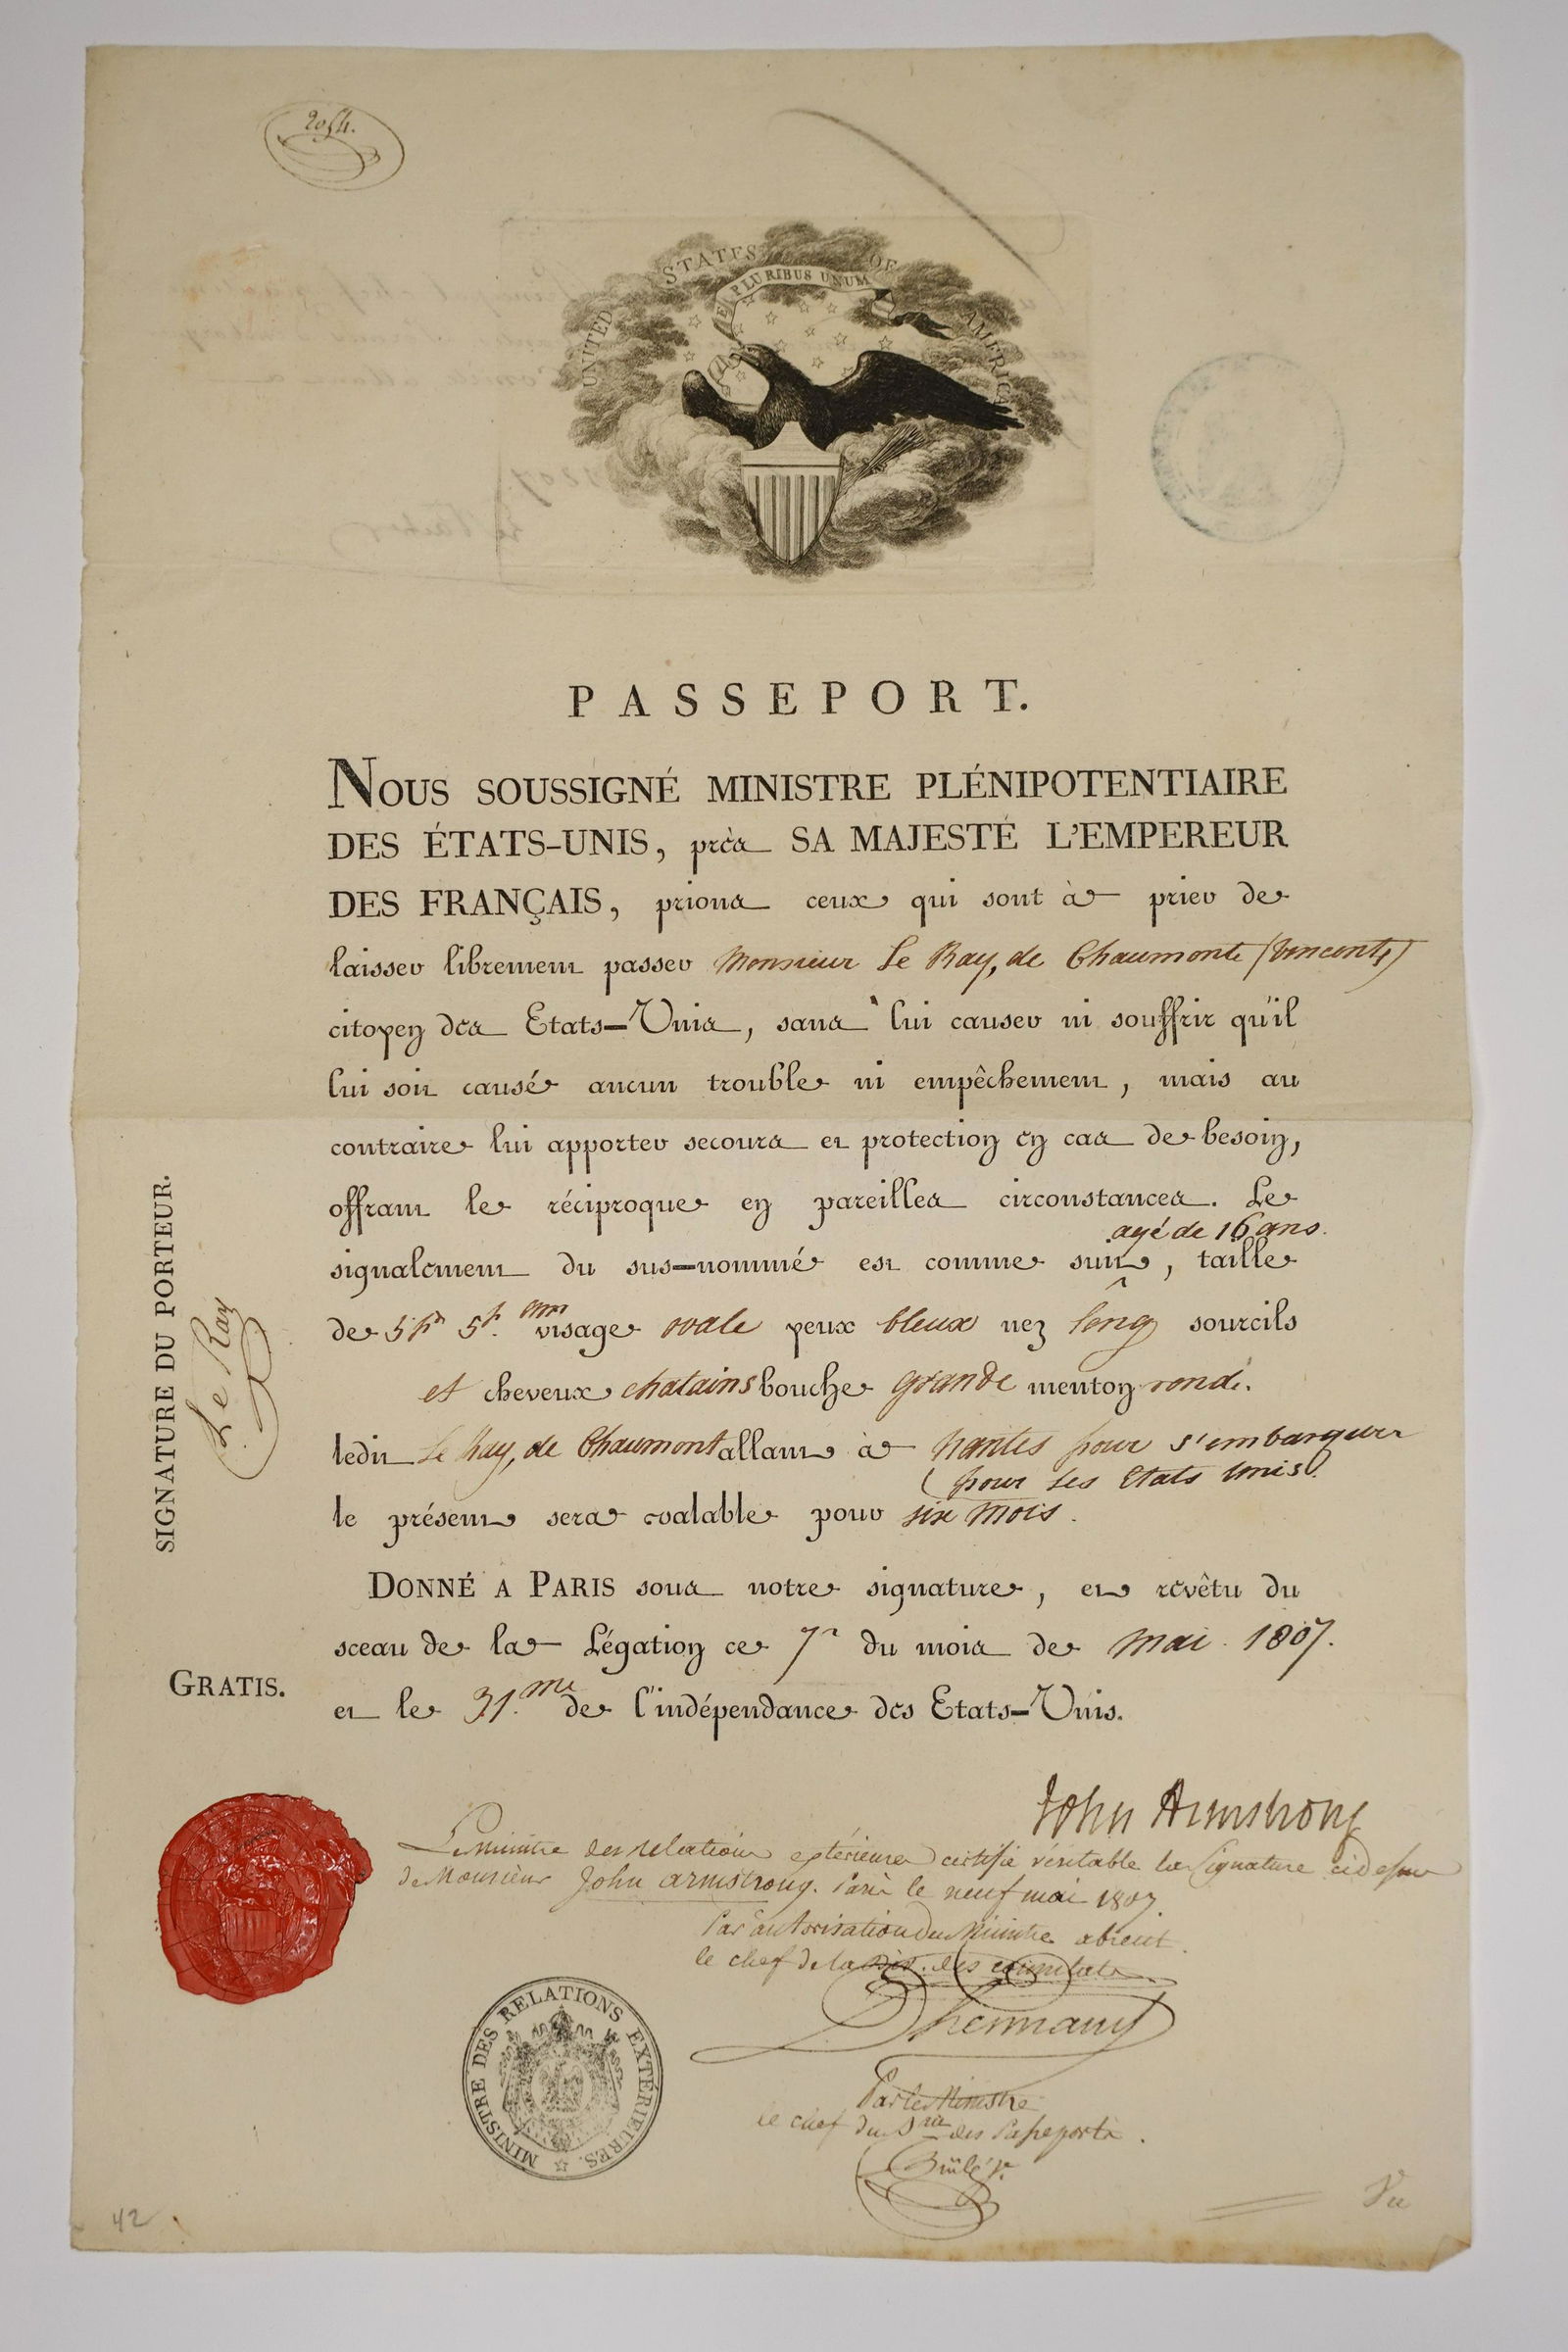 2054.
UNITED STATES OF AMERICA
E PLURIBUS UNUM
PASSEPORT.
NOUS SOUSSIGNÉ MINISTRE PLÉNIPOTENTIAIRE
DES ÉTATS-UNIS, près SA MAJESTÉ L'EMPEREUR
DES FRANÇAIS, prions ceux qui sont à prier de
laisser librement passer Monsieur Le Ray, de Chaumont (Vincent)
citoyen des Etats-Unis, sans lui causer ni souffrir qu'il
lui soit causé aucun trouble ni empêchement, mais au
contraire lui apporter secours et protection en cas de besoin,
offrant le réciproque en pareilles circonstances. Le
agé de 16 ans.
signalement du sus-nommé est comme suit, taille
de 5 5 visage ovale yeux bleux nez long sourcils
et cheveux chatains bouche grande menton rond.
ledit Le Ray, de Chaumont allant à Nantes pour s'embarquer
pour les Etats Unis
le présent sera valable pour six mois.
DONNÉ A PARIS sous notre signature, et revêtu du
sceau de la Légation ce 7 du mois de mai 1807.
et le 31.me de l'indépendance des Etats-Unis.
SIGNATURE DU PORTEUR.
Le Ray
GRATIS.
John Armstrong
Le ministre des relations extérieures certifie véritable la signature cidessus
de Monsieur John armstrong. Paris le neuf mai 1807.
Par autorisation du Ministre absent.
le chef de la div. des consulats
Dhermand
Par le Ministre
le chef du des Passeports.
MINISTRE DES RELATIONS EXTÉRIEURES.
42
Vu